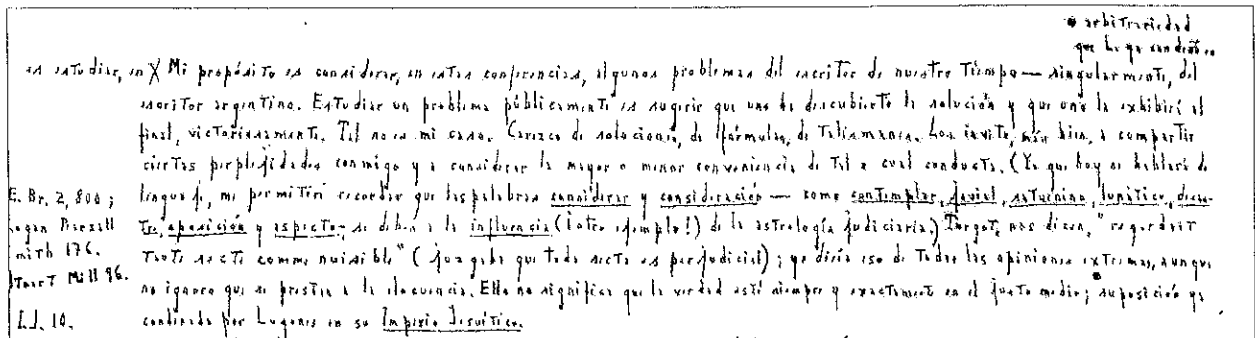 arbitrariedad
que ha ya condenado
es estudiar, en X Mi propósito es considerar, en estas conferencias, algunos problemas del escritor de nuestro Tiempo — singularmente, del
escritor argentino. Estudiar un problema públicamente es sugerir que uno ha descubierto la solución y que uno la exhibirá al
final, victoriosamente. Tal no es mi caso. Carezco de soluciones, de fórmulas, de Talismanes. Los invito, más bien, a compartir
ciertas perplejidades conmigo y a considerar la mayor o menor conveniencia de tal o cual conducta. (Ya que hoy se hablará de
E. Br. 2, 800; lenguaje, me permitiré recordar que las palabras considerar y consideración — como contemplar, jovial, saturnino, lunático, desas-
Logan Pearsall tre, oposición y aspecto — se deben a la influencia (¡otro ejemplo!) de la astrología judiciaria.) Turgot, nos dicen, "regardait
Smith 176. toute secte comme nuisible" (juzgaba que toda secta es perjudicial); yo diría eso de Todas las opiniones extremas, aunque
Stuart Mill 96. no ignoro que se prestan a la elocuencia. Ello no significa que la verdad esté siempre y exactamente en el justo medio; suposición ya
L.I. 10. condenada por Lugones en su Imperio Jesuítico.